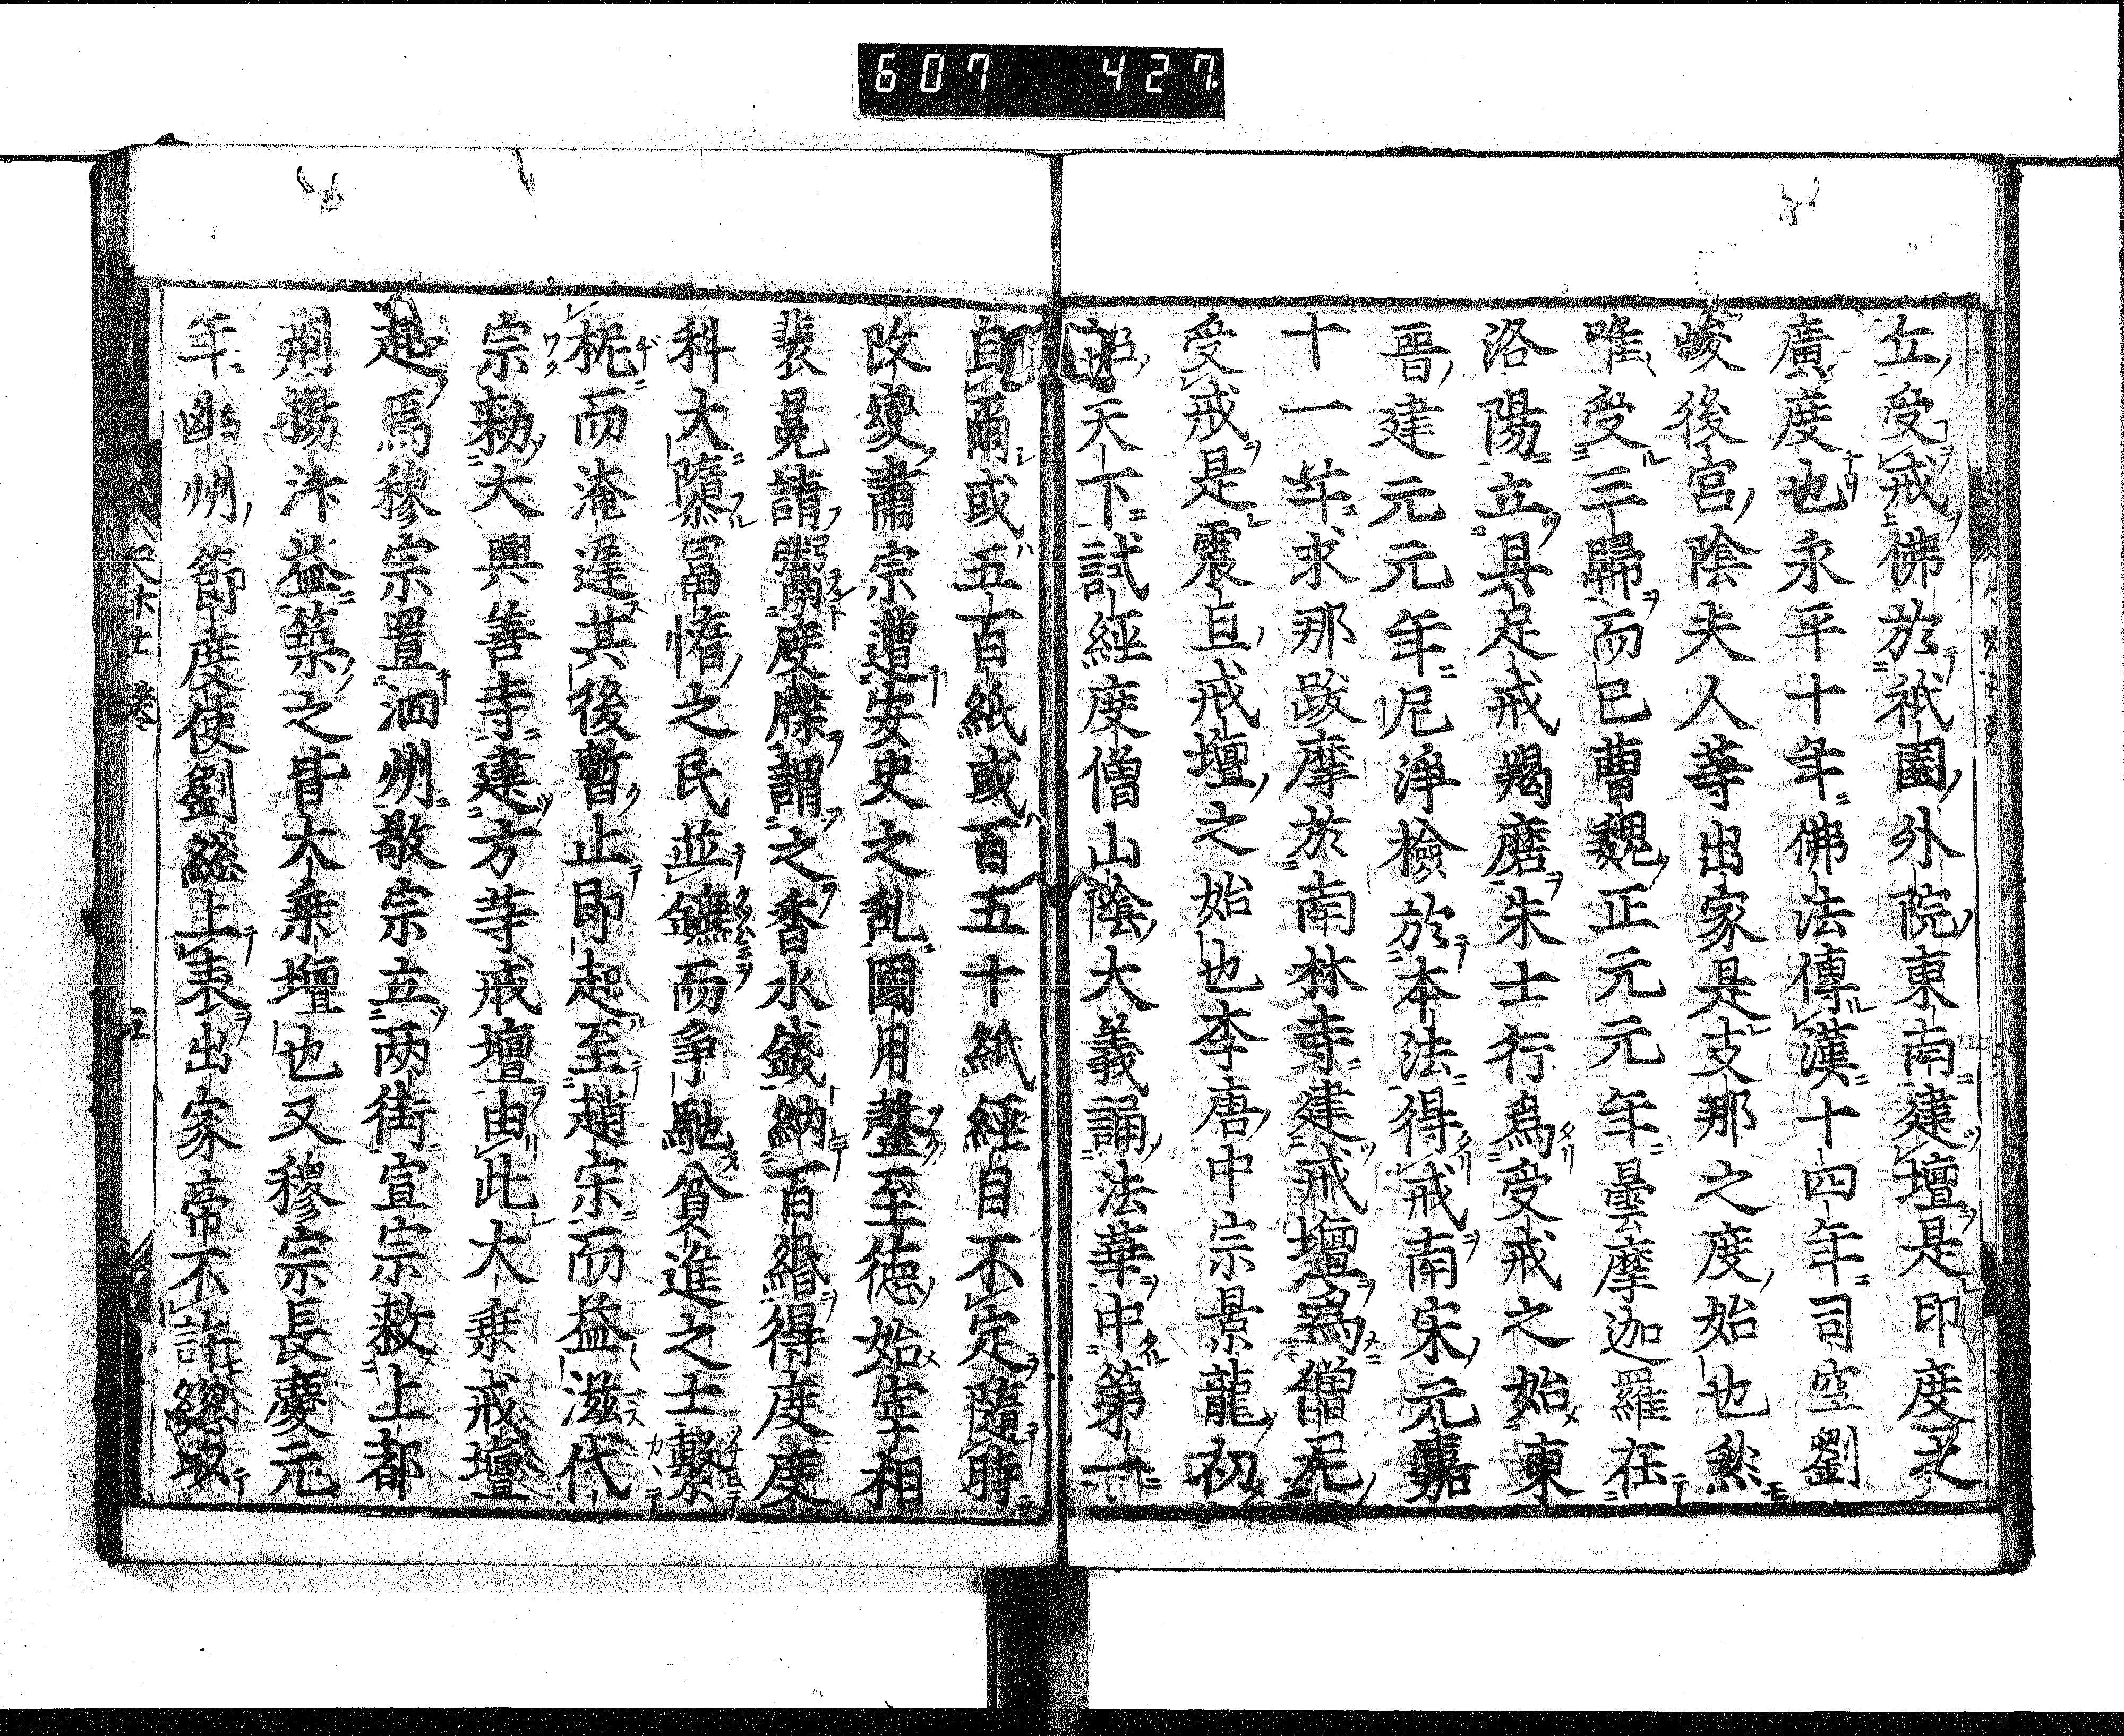 607 427
丘受戒佛於祇園外院東南建壇是印度之
廣度也永平十年佛法傳漢十四年司空劉
峻後宮陰夫人等出家是支那之度始也然
唯受三歸而已曹魏正元元年曇摩迦羅在
洛陽立具足戒羯磨朱士行爲受戒之始東
晉建元元年尼淨檢於本法得戒南宋元嘉
十一年求那跋摩於南林寺建戒壇爲僧尼
受戒是震旦戒壇之始也李唐中宗景龍初
詔天下試經度僧山陰大義誦法華中第一
自爾或五百紙或百五十紙經目不定隨時
改變肅宗遭安史之乱國用罄至德始宰相
裴冕請鬻度牒謂之香水錢納百緡得度度
科大隳冨惰之民並鑣而爭馳貧進之士繫
柅而淹遅其後暫止即起至趙宋而益滋代
宗勅大興善寺建方等戒壇由此大乗戒壇
起焉穆宗置泗州敬宗立兩街宣宗救上都
荊揚汴益築之皆大乗壇也又穆宗長慶元
年幽州節度使劉総上表出家帝不許総取